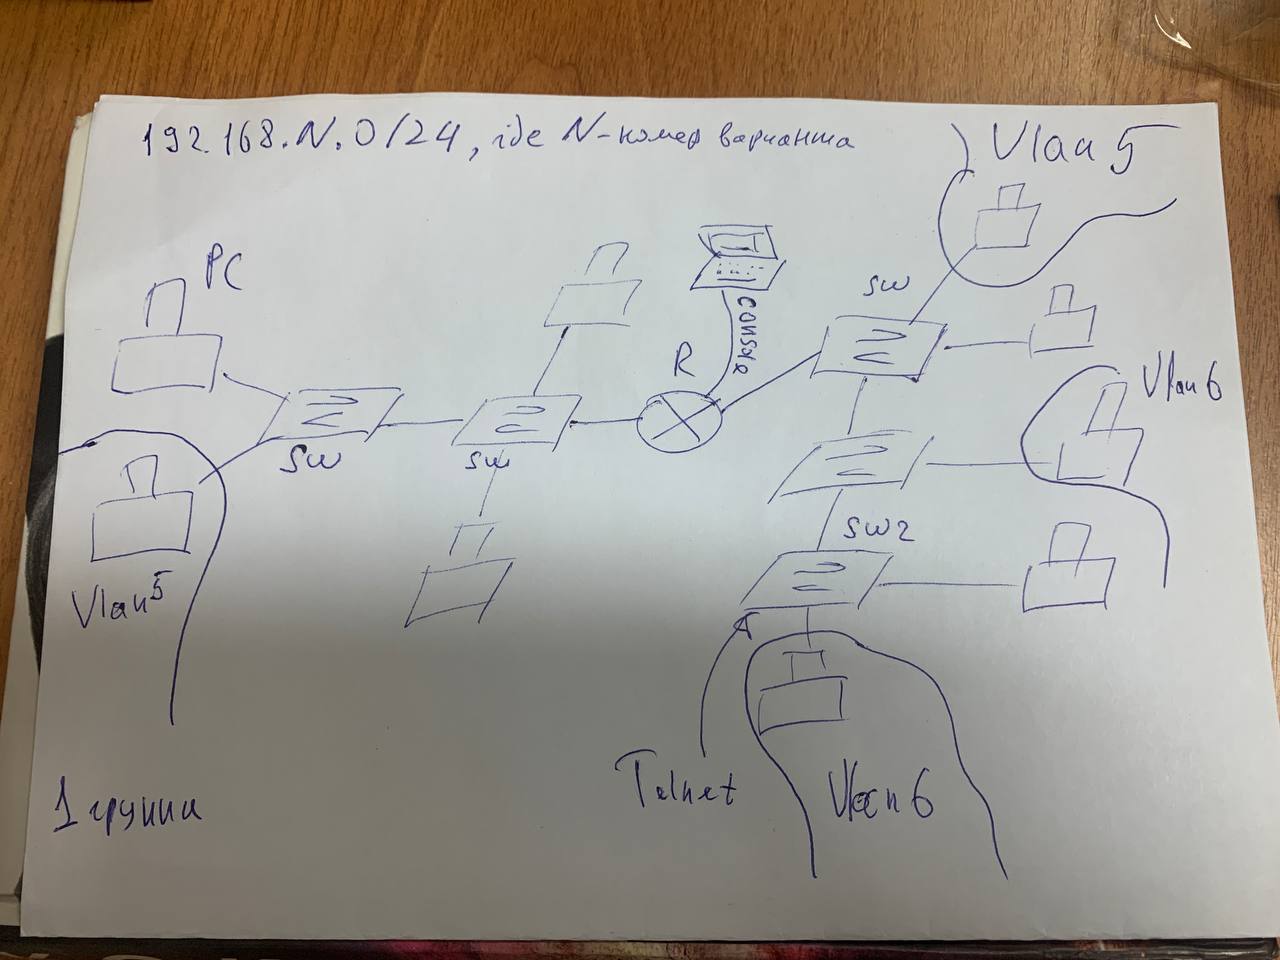 192.168.N.0/24, где N-номер варианта
Vlan 5
PC
SW
console
R
Vlan 6
SW
SW
SW2
Vlan 5
Telnet
Vlan 6
1 группа